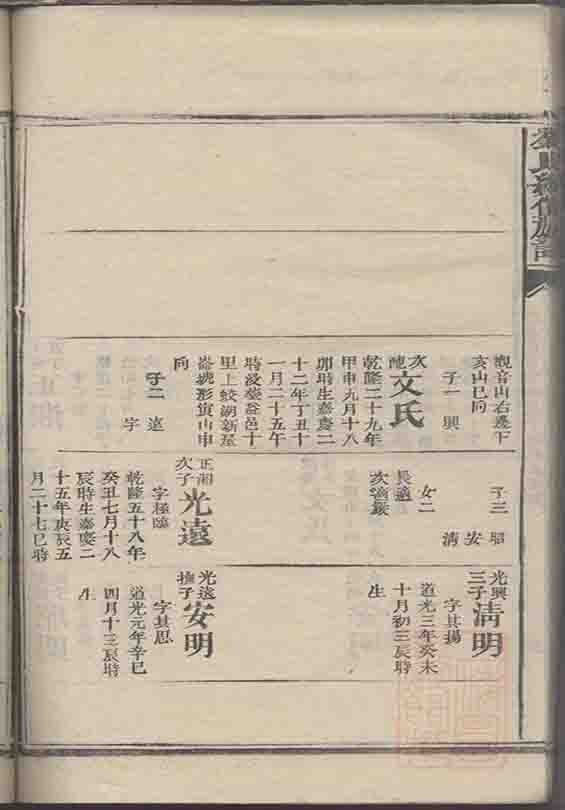 觀音山右邊下
亥山巳向
子一 興
次配
文氏
乾隆二十九年
甲申九月十八
卯時生嘉慶二
十二年丁丑十
一月二十五午
時沒塟益邑十
里上鮫湖新屋
崙塊形寅山申
向
子二 遠 字
子三 昭 安 清
女二
長適
次適嚴
正湘
次子
光遠
字極臨
乾隆五十八年
癸丑七月十八
辰時生嘉慶二
十五年庚辰五
月二十七巳時
光興
三子
清明
字其揚
道光三年癸未
十月初三辰時
生
光遠
撫子
安明
字其思
道光元年辛巳
四月十三辰時
生